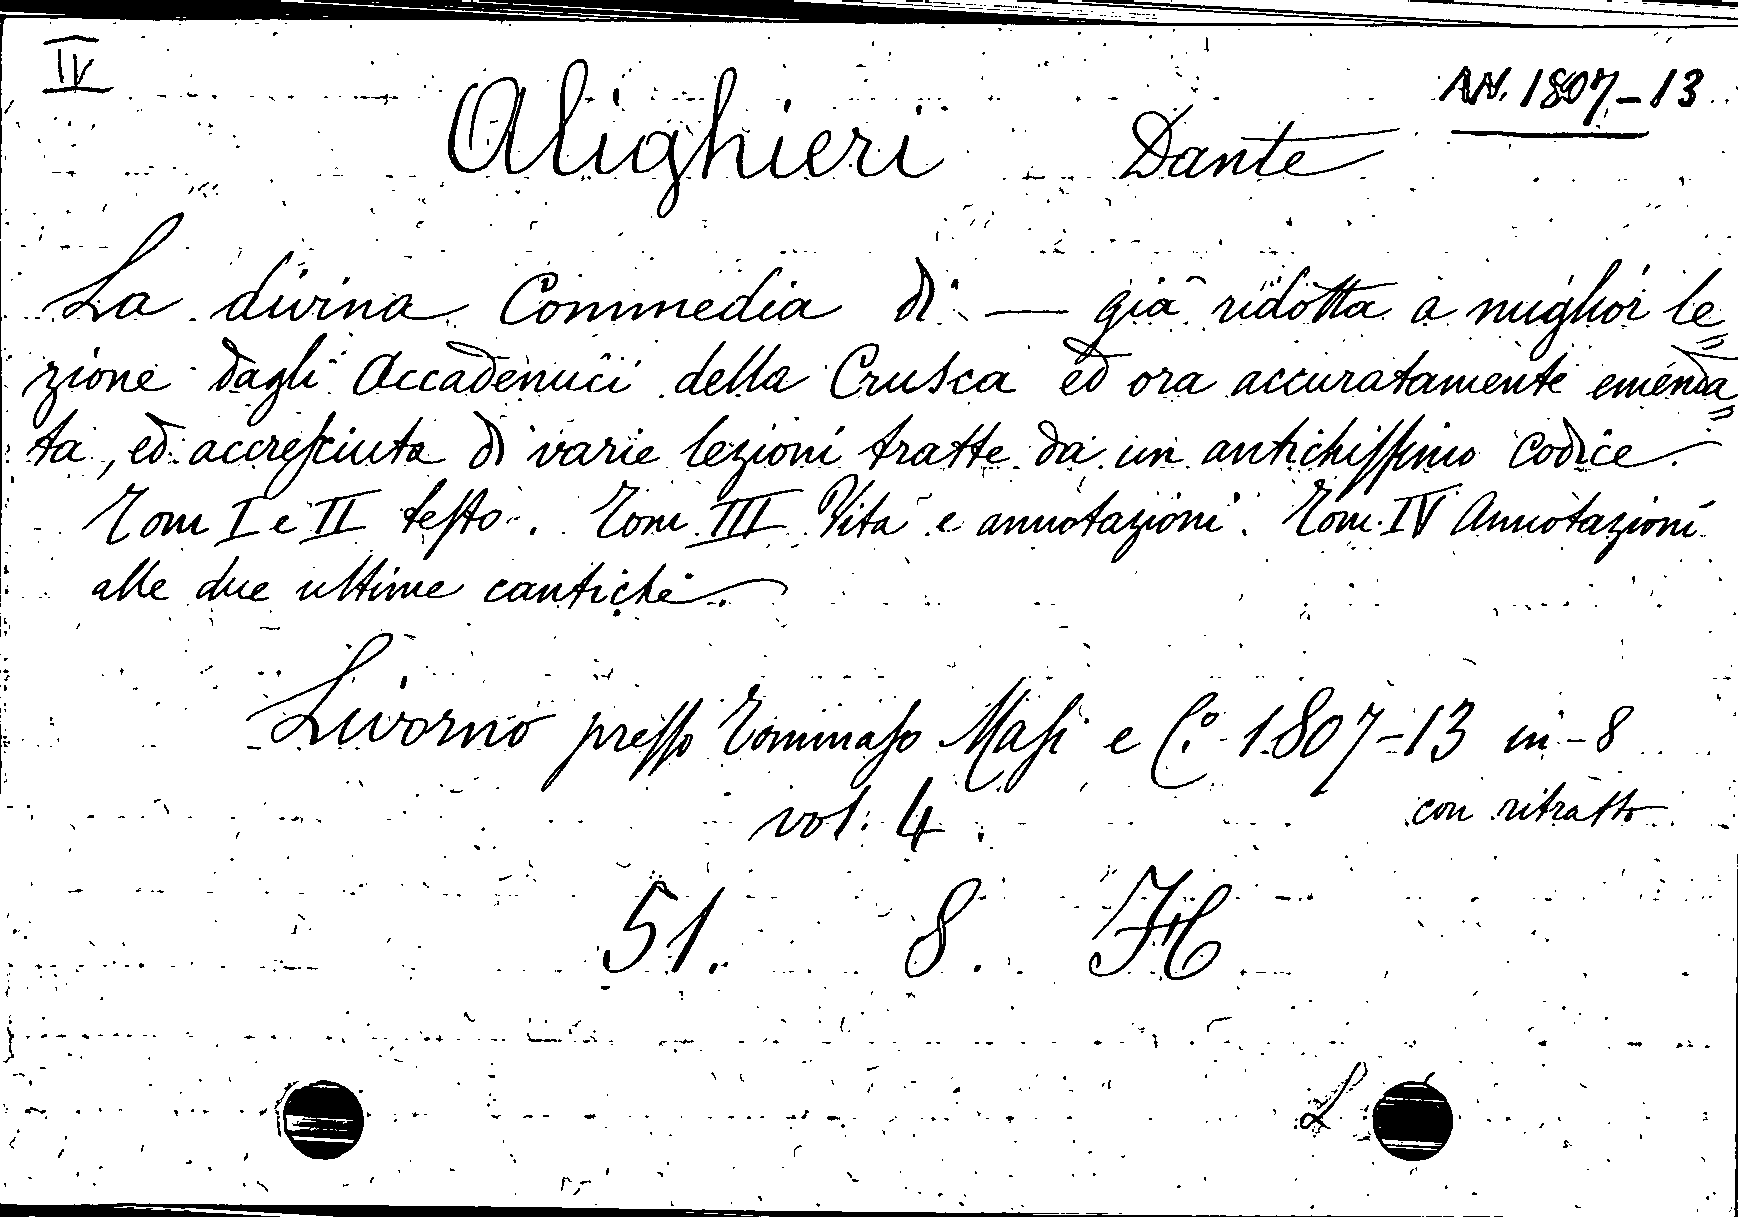 IV
AN. 1807-13
Alighieri Dante
La divina Commedia di — già ridotta a miglior le=
zione dagli Accademici della Crusca ed ora accuratamente emenda=
ta, ed accresciuta di varie lezioni tratte da un antichissimo codice.
Tom I e II testo. Tom. III Vita e annotazioni. Tom. IV Annotazioni
alle due ultime cantiche.
Livorno presso Tommaso Masi e C.º 1807-13 in-8
vol. 4 con ritratto
51. 8. H
L